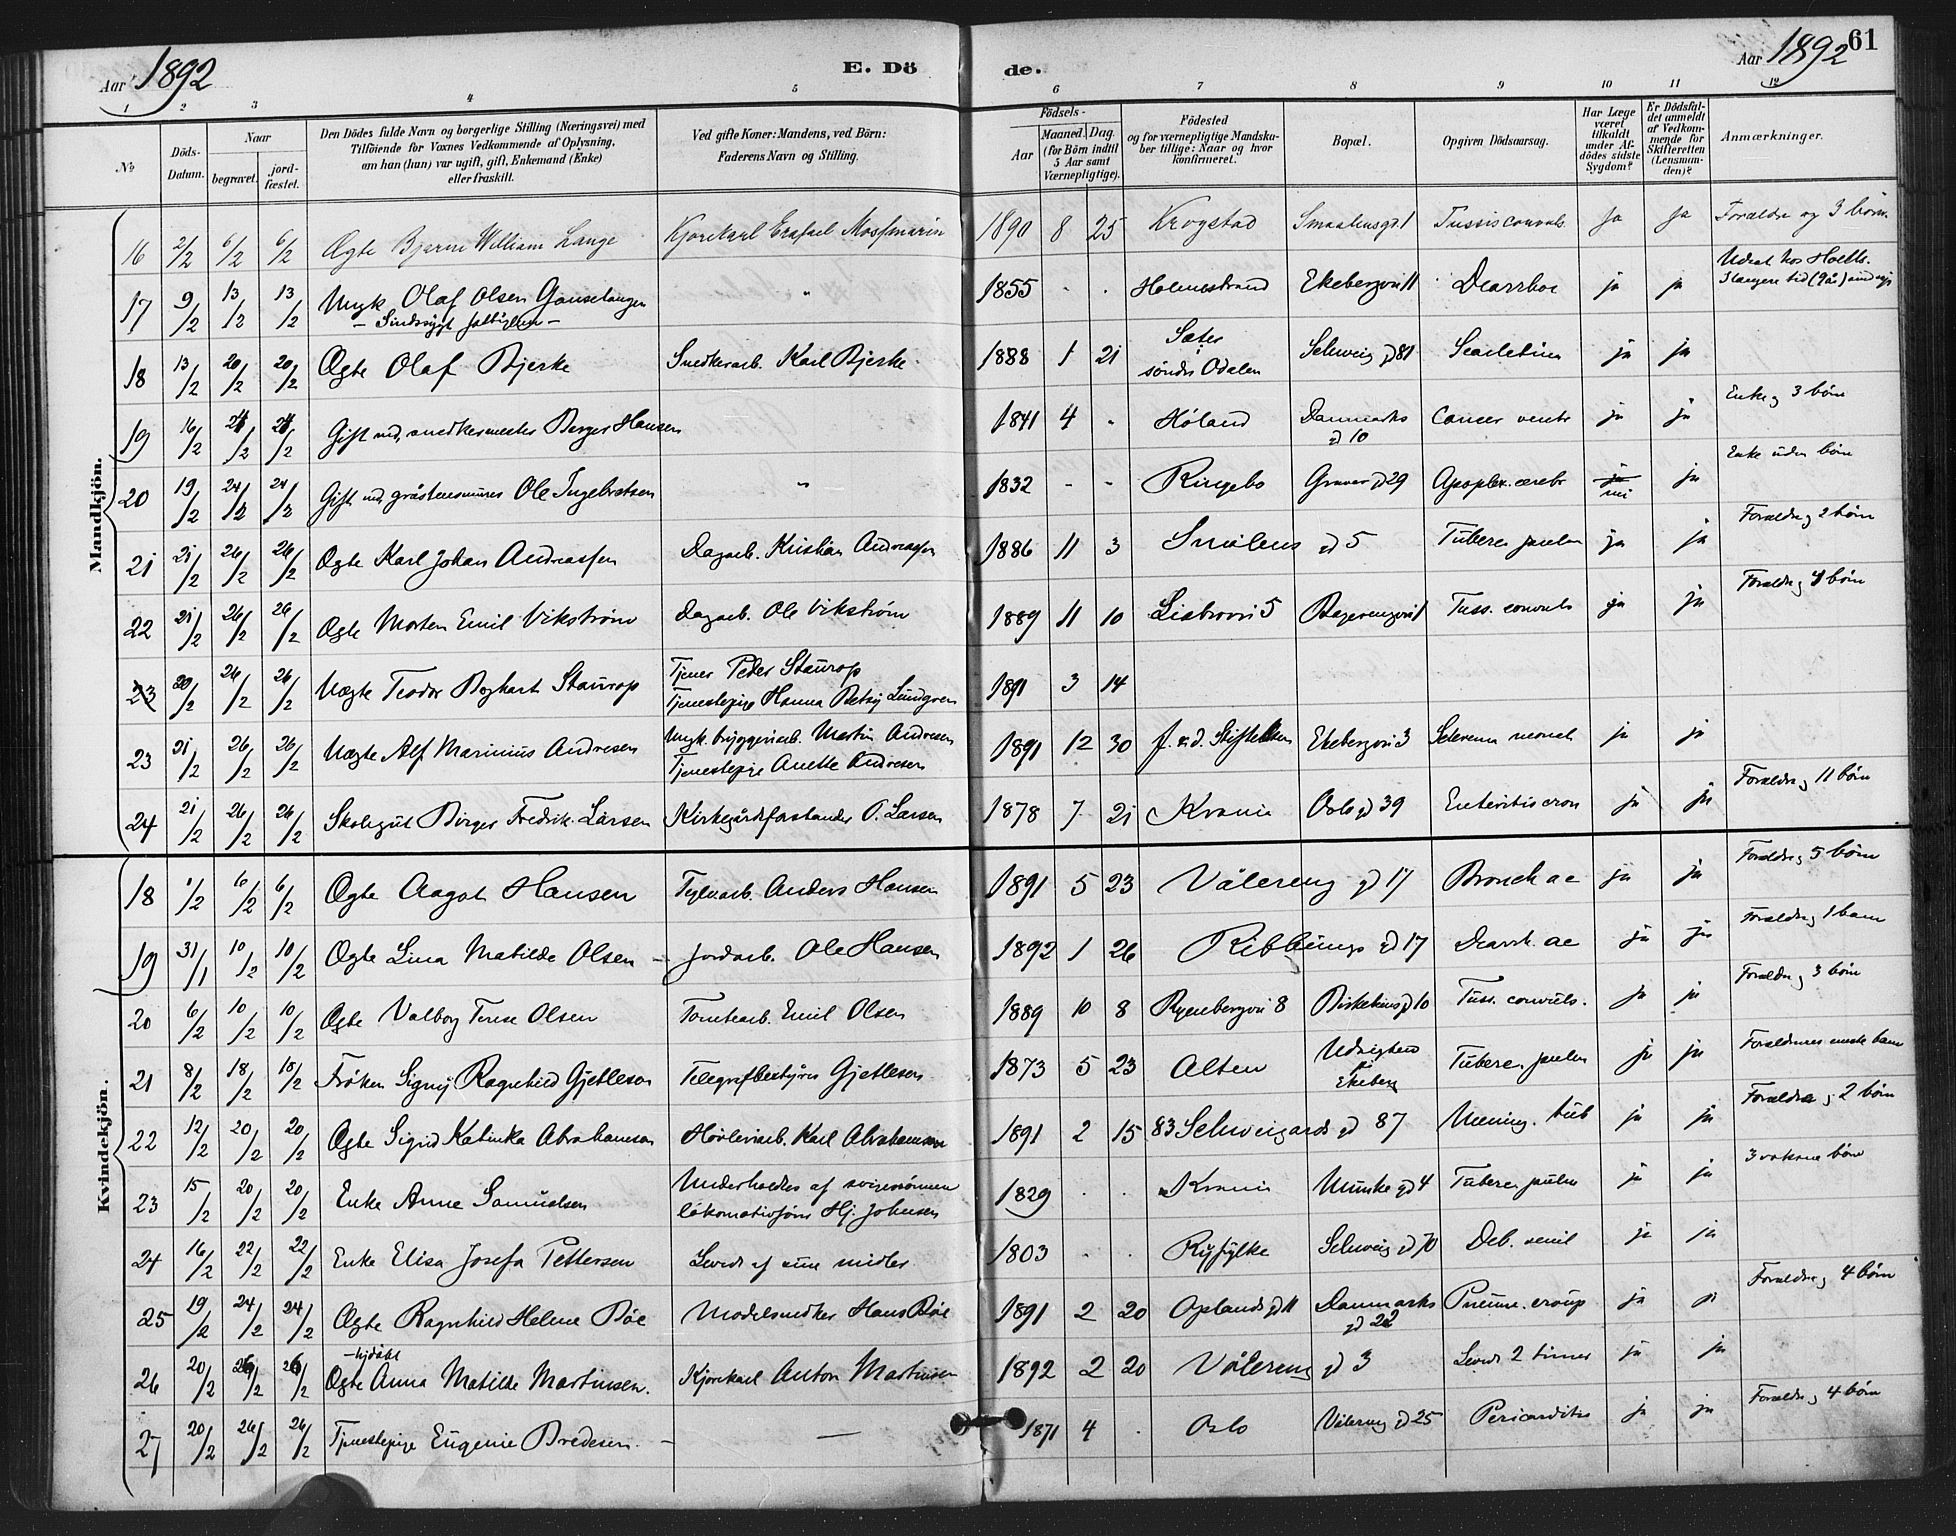 Aar 1892 E. Dö de. Aar 1892 61
1 2 3 4 5 6 7 8 9 10 11 12
No
Döds-Datum.
Naar
begravet.
jord-fæstet.
Den Dödes fulde Navn og borgerlige Stilling (Næringsvei) med
Tilföiende for Voxnes Vedkommende af Oplysning,
om han (hun) var ugift, gift, Enkemand (Enke)
eller fraskilt.
Ved gifte Koner: Mandens, ved Börn:
Faderens Navn og Stilling.
Födsels-
Aar
Maaned. Dag.
(for Börn indtil
5 Aar samt
Værnepligtige).
Födested
og for værnepligtige Mandska-
ber tillige: Naar og hvor
konfirmeret.
Bopæl.
Opgiven Dödsaarsag.
Har Læge
været
tilkaldt
under Af-
dödes sidste
Sygdom?
Er Dödsfal-
det anmeldt
af Vedkom-
mende for
Skifteretten
(Lensman-
den)?
Anmærkninger.
Mandkjön.
16 2/2 6/2 6/2 Ægte Bjarne William Lange Kjørekarl 1890 8 25 Krogstad Smaalensgd. 1 Tussis convuls. ja ja Forældre og 3 børn
17 9/2 13/2 13/2 Ungk Olaf Olsen Gauselangen " 1855 - - Holmestrand Ekebergvei 11 Diarrhoe ja ja
18 13/2 20/2 20/2 Ægte Olaf Bjerke Snedkerarb. Karl Bjerke 1888 1 21 Sæter i søndre Odalen Schweig gd 81 Scarlatina ja ja
19 16/2 24/2 24/2 Gift md snedkermester Berger Hansen 1841 4 - Høland Danmarks gd 10 Cancer ventr ja ja Enke og 3 børn
20 19/2 24/2 24/2 Gift md gråstensmurer Ole Ingebretsen " 1832 - - Ringebo Grønergd 29 Apoplex. cerebr ja nei ja Enke uden børn
21 21/2 26/2 26/2 Ægte Karl Johan Andreassen Dagarb. Kristian Andreassen 1886 11 3 Smålens gd 5 Tuberc. pulm ja ja Forældre og 2 børn
22 21/2 26/2 26/2 Ægte Morten Emil Vikstrøm Dagarb. Ole Vikstrøm 1889 11 10 Liabrovei 5 Tuss. convuls ja ja Forældre og 4 børn
23 20/2 26/2 26/2 Uægte Teodor Staurop Tjener Peder Staurop
Tjenestepige Hanna Betsy Lundgren 1891 3 14
23 21/2 26/2 26/2 Uægte Alf Marinius Andresen Ungk. bryggeriarb. Martin Andresen
Tjenestepige Anette Andresen 1891 12 30 f. v. d. Stiftelsen Ekebergvei 3 Sclerema neonat ja ja
24 21/2 26/2 26/2 Skolegut Birger Fredrik Larsen Kirkegårdsforstander O. Larsen 1878 7 21 Krania Oslo gd 39 Enteritis cron ja ja Forældre og 11 børn
Kvindekjön.
18 1/2 6/2 6/2 Ægte Aagot Hansen Teglv.arb. Anders Hansen 1891 5 23 Vålereng gd 17 Bronch ac ja ja Forældre og 5 børn
19 31/1 10/2 10/2 Ægte Lina Matilde Olsen - Jordarb. Ole Hansen 1892 1 26 Ribbungs gd 17 Diarrh. ac ja ja Forældre og 1 barn
20 6/2 10/2 10/2 Ægte Valborg Terese Olsen Tomtearb. Emil Olsen 1889 10 8 Ryenbergvei 8 Biskekins gd 10 Tuss. convuls. ja ja Forældre og 3 børn
21 8/2 18/2 18/2 Frøken Signy Ragnhild Gjetleson Telegrafbestyrer Gjetlesen 1873 5 23 Alten Udsigten på Ekeberg Tuberc. pulm ja ja Forældrenes eneste barn
22 12/2 20/2 20/2 Ægte Sigrid Katinka Abrahamson Høvleriarb. Karl Abrahamson 1891 2 15 83 Schweigaards gd 87 Mening. tub ja ja Forældre og 2 børn
23 15/2 20/2 20/2 Enke Anne Samuelsen Underholdes af svigersønnen
lokomotivfører Hj. Johnsen 1829 - - Krania Munke gd 4 Tuberc. pulm ja ja 3 voksne børn
24 16/2 22/2 22/2 Enke Elisa Josefa Pettersen Levede af sine midler 1803 - - Ryfylke Schweig gd 70 Deb. senil ja ja
25 19/2 24/2 24/2 Ægte Ragnhild Helene Bøe Modelsnedker Hans Bøe 1891 2 20 Oplands gd 11 Danmarks gd 22 Pneum. croup ja ja Forældre og 4 børn
26 20/2 26/2 26/2 - hjdøbt
Ægte Anna Matilde Martinsen. Kjørekarl Anton Martinsen 1892 2 20 Vålereng gd 3 Levede 2 timer ja ja
27 20/2 26/2 26/2 Tjenestepige Eugenie Bredesen. - — 1871 4 - Oslo Vålereng gd 25 Pericarditis ja ja Forældre og 4 børn